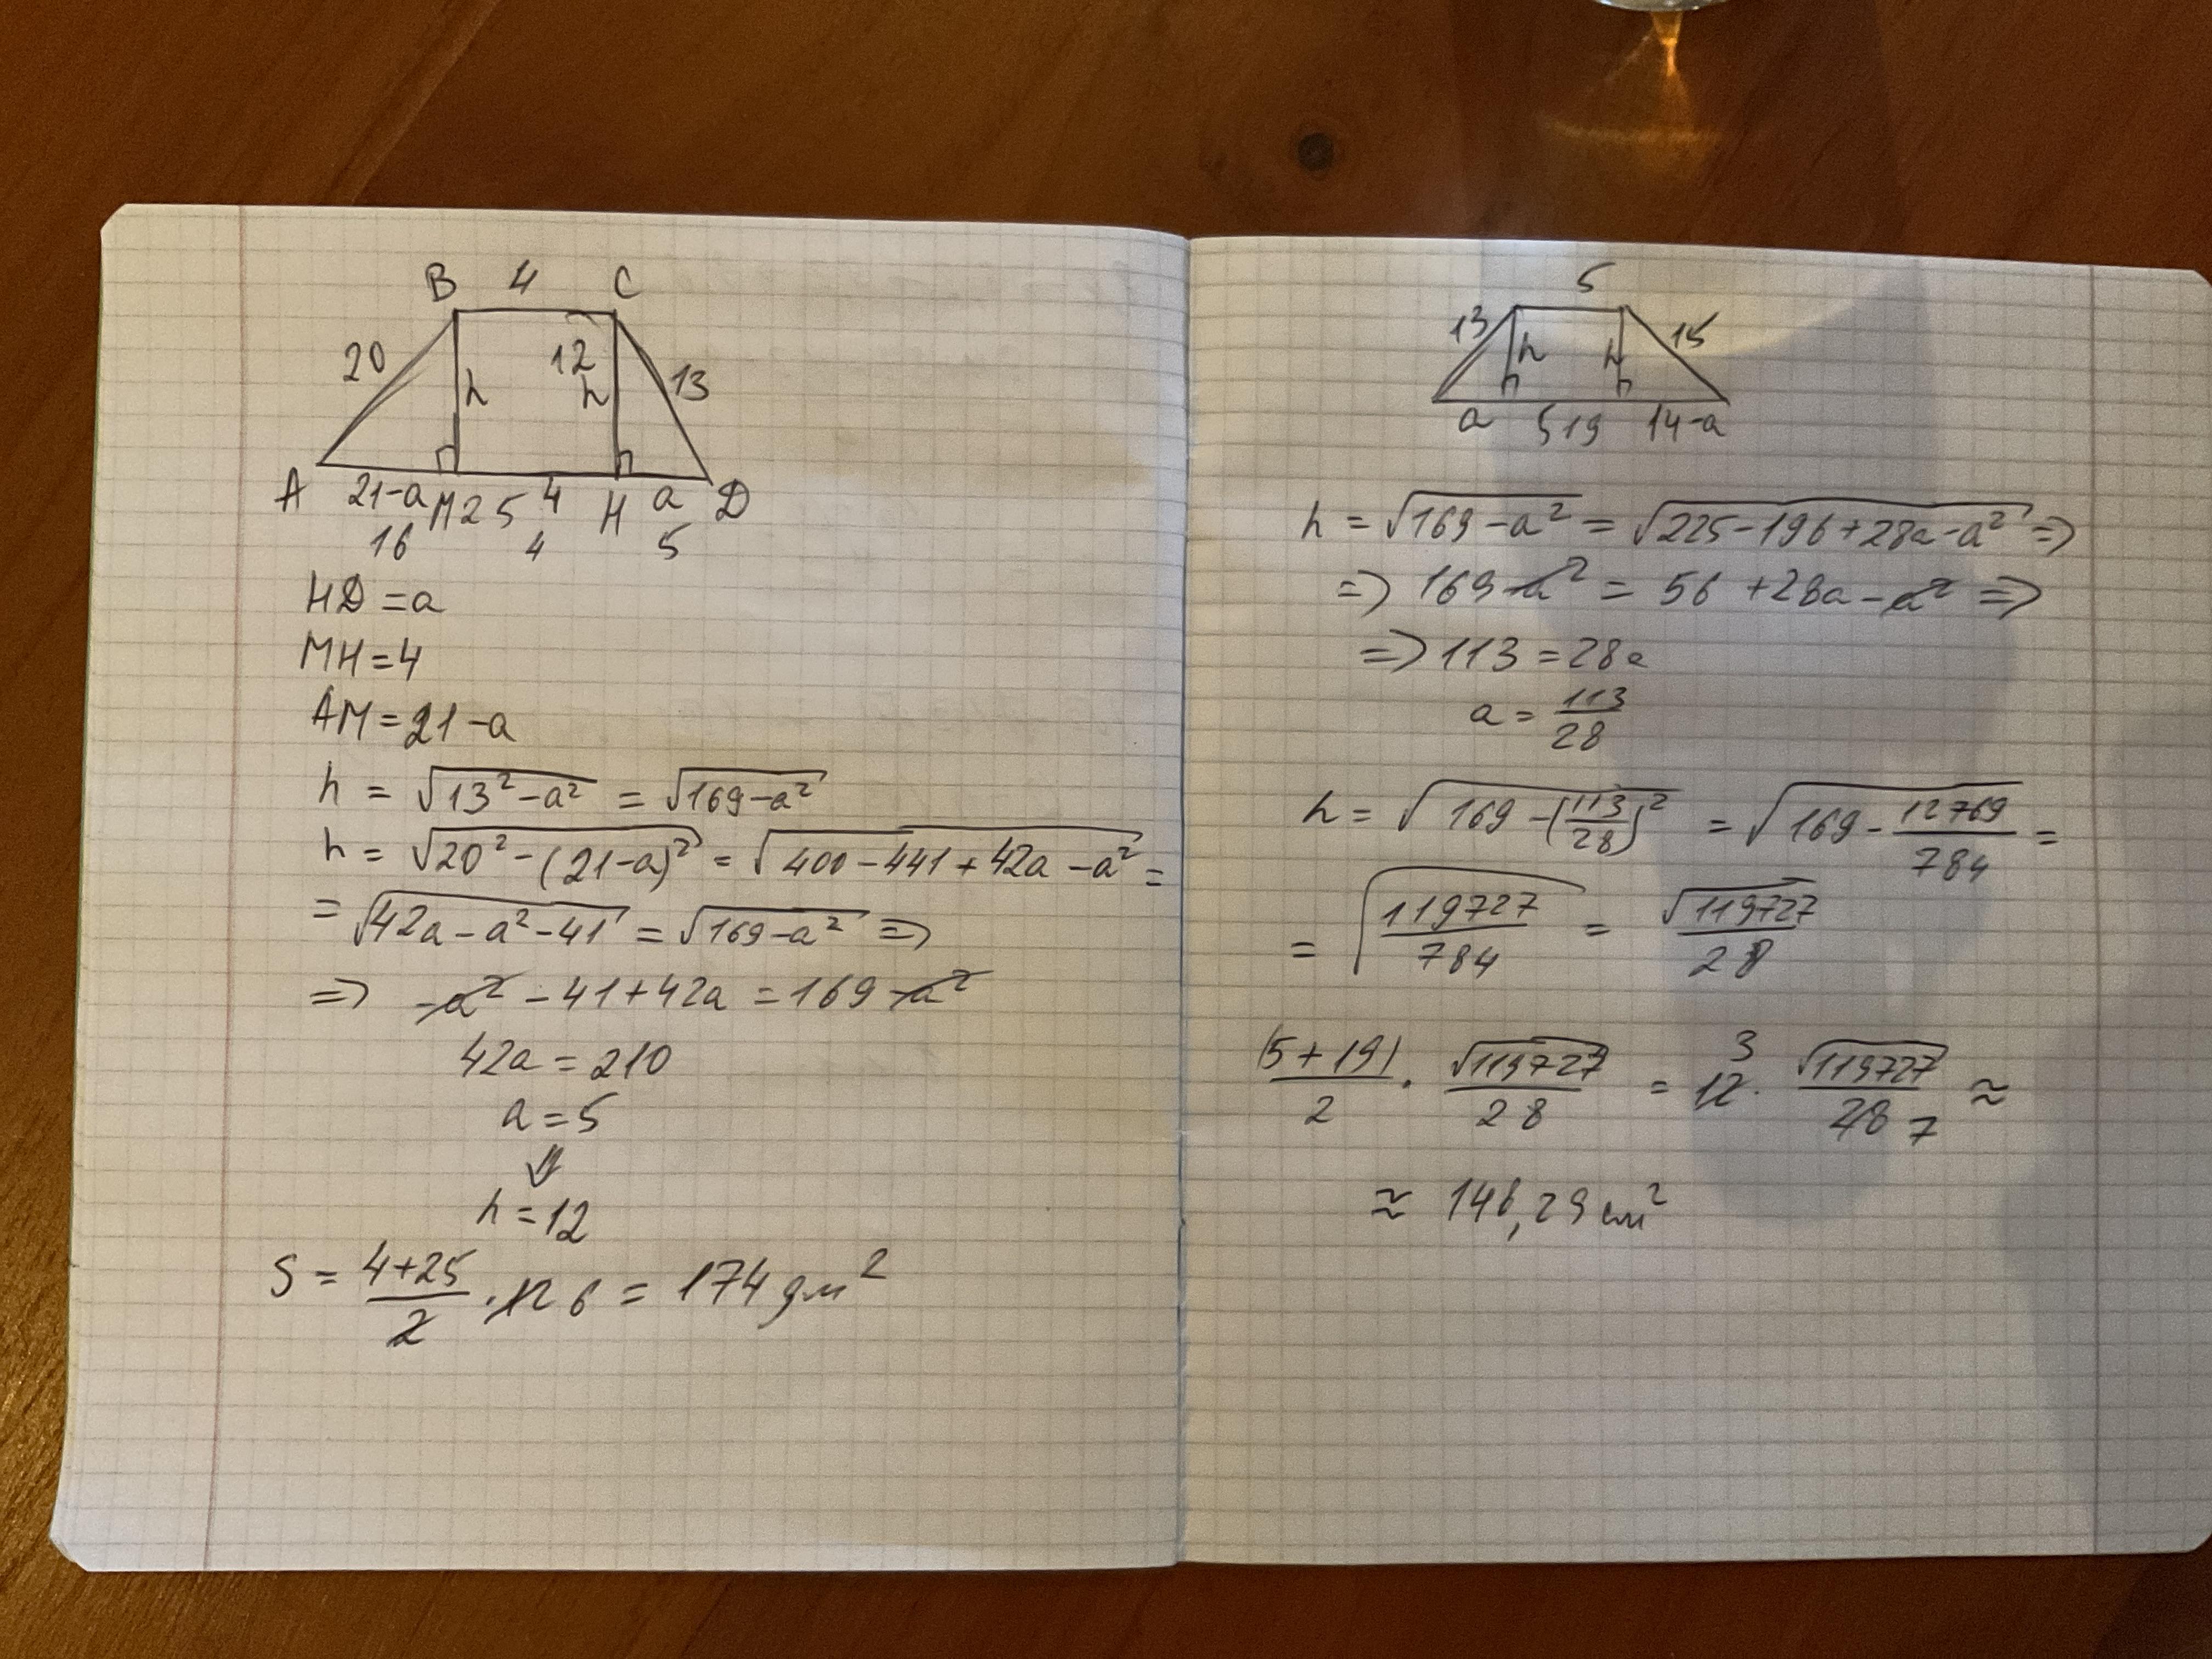 B 4 C
20 h 12 h 13
A 21-a M 25 4 H a D
16 4 5
HD = a
MH = 4
AM = 21-a
h = √(13² - a²) = √(169-a²)
h = √(20² - (21-a)²) = √(400 - 441 + 42a - a²) =
= √(42a - a² - 41) = √(169-a²) =>
=> -a² - 41 + 42a = 169 - a²
42a = 210
a = 5
⇓
h = 12
S = (4+25)/2 · 12 6 = 174 дм²
5
13 h h 15
a 5 19 14-a
h = √(169 - a²) = √(225 - 196 + 28a - a²) =>
=> 169 - a² = 56 + 28a - a² =>
=> 113 = 28a
a = 113/28
h = √(169 - (113/28)²) = √(169 - 12769/784) =
= √(119727/784) = √119727/28
(5+19)/2 · √119727/28 = 12 3 · √119727/28 7 ≈
≈ 148,29 см²